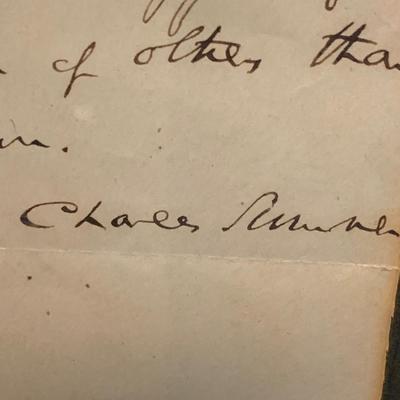 of other than
Charles Sumner